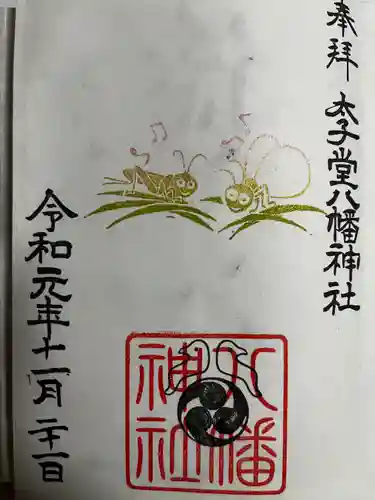 奉拝 太子堂八幡神社
八幡
神社
令和元年十一月二十一日